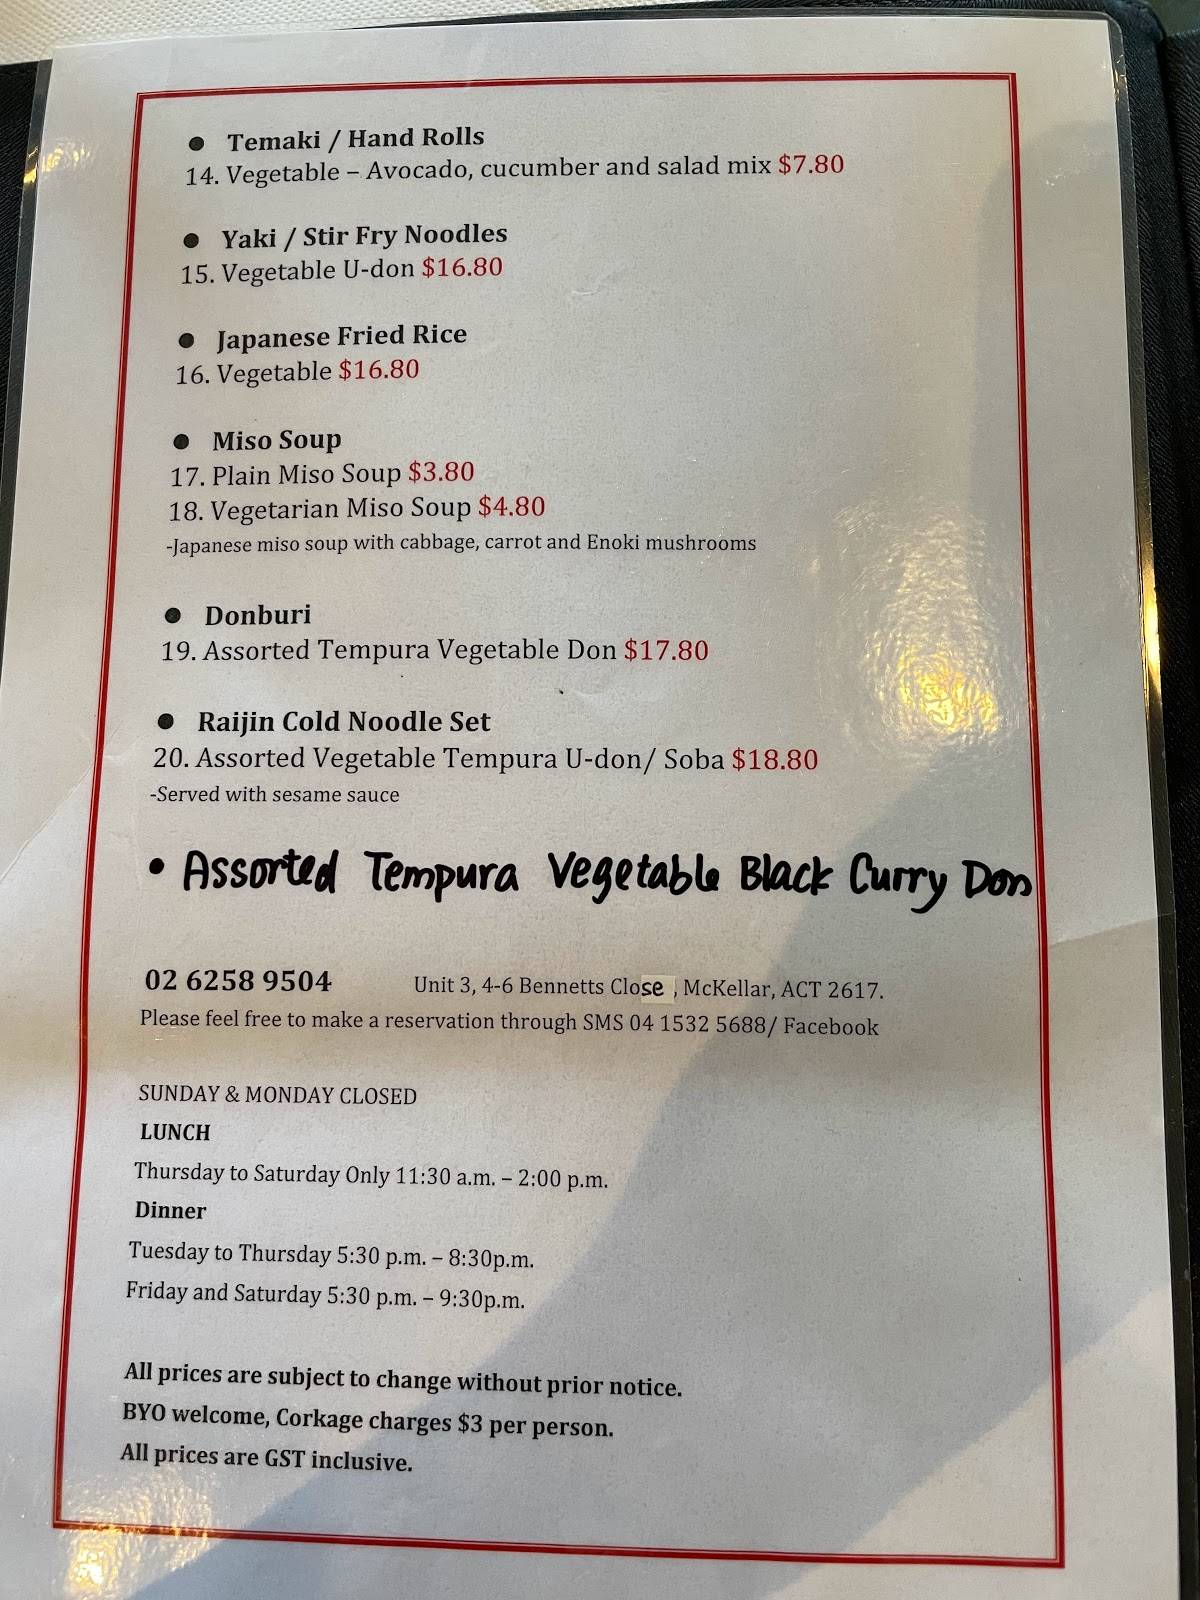 ● Temaki / Hand Rolls
14. Vegetable – Avocado, cucumber and salad mix $7.80
● Yaki / Stir Fry Noodles
15. Vegetable U-don $16.80
● Japanese Fried Rice
16. Vegetable $16.80
● Miso Soup
17. Plain Miso Soup $3.80
18. Vegetarian Miso Soup $4.80
-Japanese miso soup with cabbage, carrot and Enoki mushrooms
● Donburi
19. Assorted Tempura Vegetable Don $17.80
● Raijin Cold Noodle Set
20. Assorted Vegetable Tempura U-don/ Soba $18.80
-Served with sesame sauce
• Assorted Tempura Vegetable Black Curry Don
02 6258 9504 Unit 3, 4-6 Bennetts Close , McKellar, ACT 2617.
Please feel free to make a reservation through SMS 04 1532 5688/ Facebook
SUNDAY & MONDAY CLOSED
LUNCH
Thursday to Saturday Only 11:30 a.m. – 2:00 p.m.
Dinner
Tuesday to Thursday 5:30 p.m. – 8:30p.m.
Friday and Saturday 5:30 p.m. – 9:30p.m.
All prices are subject to change without prior notice.
BYO welcome, Corkage charges $3 per person.
All prices are GST inclusive.